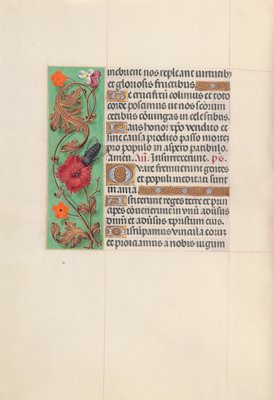 mebuent nos repleant virtutibꝫ
et gloriosis fructibus
Te crucifixi colimus et toto
corde poscimus ut nos seorum
cetibus coniungas in celestibus.
Laus honor xpō vendito et
sine causa prodito passo mortem
pro populo in aspero patibulo.
Amen. Añ. Insurrexerunt. ps.
Quare fremuerunt gentes
et populi meditati sunt
inania
Astiterunt reges terre et prin
cipes convenerunt in unū adūsus
dominū et adūsus xpistum eius.
Disrumpamus vincula eorum
et proiciamus a nobis iugum